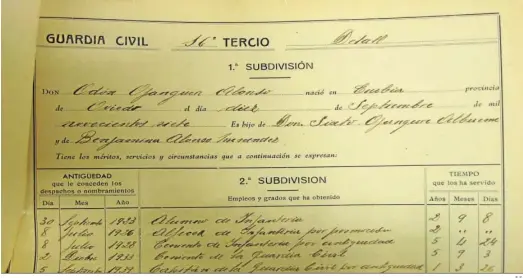 GUARDIA CIVIL 16º TERCIO Detall
1.ª SUBDIVISIÓN
DON Odón Ojanguren Alonso nació en provincia
de Oviedo el día diez de Septiembre de mil
novecientos siete Es hijo de Don Sixto Ojanguren
y de Benjamina Alonso Fernández
Tiene los méritos, servicios y circunstancias que a continuación se expresan:
ANTIGÜEDAD
que le conceden los
despachos o nombramientos
2.ª SUBDIVISIÓN
Empleos y grados que ha obtenido
TIEMPO
que los ha servido
Día Mes Año Años Meses Días
30 Septiembre 1923 Alumno de Infantería 2 9 8
8 Julio 1926 Alférez de Infantería por promoción 2 " "
8 Julio 1928 Teniente de Infantería por antigüedad 5 4 24
2 1933 Teniente de la Guardia Civil 5 9 3
5 Septiembre 1939 Capitán de la Guardia Civil por antigüedad 26